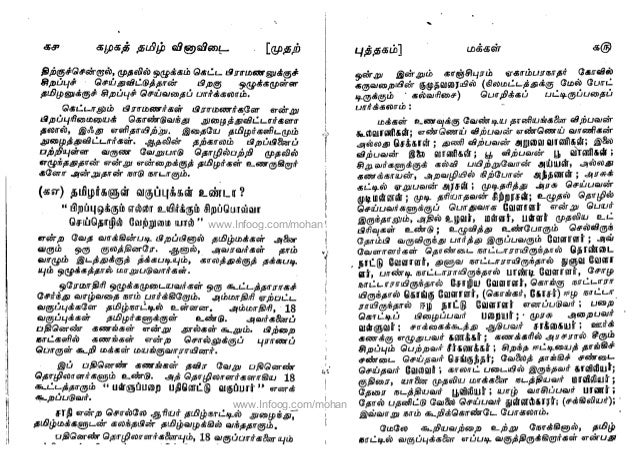 கச கழகத் தமிழ் வினாவிடை [முதற்
திற்குச்சென்றால், முதலில் ஒழுக்கம் கெட்ட பிராமணனுக்குச்
சிறப்புச் செய்துவிட்டுத்தான் பிறகு ஒழுக்கமுள்ள
தமிழனுக்குச் சிறப்புச் செய்வதைப் பார்க்கலாம்.
கெட்டாலும் பிராமணர்கள் பிராமணர்களே என்று
பிறப்புரிமையைக் கொண்டுவந்து அழைத்துவிட்டார்களா
தலால், இஃது எளிதாயிற்று. இதையே தமிழர்களிடமும்
அழைத்துவிட்டார்கள். ஆதலின் தற்காலம் பிறப்பினைப்
பற்றியுள்ள வருண வேறுபாடு தொழில்பற்றி முதலில்
எழுந்ததுதான் என்று என்றைக்குத் தமிழர்கள் உணருகிறார்
களோ அன்றுதான் நாடு நாடாகும்.
(கஎ) தமிழர்களுள் வகுப்புக்கள் உண்டா?
“ பிறப்பொக்கும் எல்லா உயிர்க்கும் சிறப்பொவ்வா
செய்தொழில் வேற்றுமை யால் ”
என்ற வேத வாக்கின்படி பிறப்பினால் தமிழ்மக்கள் அனை
வரும் ஒரு குலத்தினரே. ஆனால், அவரவர்கள் தாம்
வாழும் இடத்துக்குத் தக்கபடியும், காலத்துக்குத் தக்கபடி
யும் ஒழுக்கத்தால் மாறுபடுவார்கள்.
ஒரேமாதிரி ஒழுக்கமுடையவர்கள் ஒரு கூட்டத்தாராகச்
சேர்ந்து வாழ்வதை நாம் பார்க்கிறோம். அம்மாதிரி ஏற்பட்ட
வகுப்புக்களே தமிழ்நாட்டில் உள்ளன. அம்மாதிரி, 18
வகுப்புக்கள் தமிழர்களுக்குள் உண்டு. அவர்களைப்
பதினெண் கணங்கள் என்று நூல்கள் கூறும். பிற்றை
நாட்களில் கணங்கள் என்ற சொல்லுக்குப் புராணப்
பொருள் கூறி மக்கள் மயக்குவாராயினர்.
இப் பதினெண் கணங்கள் தவிர வேறு பதினெண்
தொழிலாளர்களும் உண்டு. அத் தொழிலாளர்களாகிய 18
கூட்டத்தாரும் “ பள்ளுப்பறை பதினெட்டு வகுப்பார் ” எனக்
கூறப்படுவர்.
சாதி என்ற சொல்லே ஆரியர் தமிழ்நாட்டில் நுழைந்து,
தமிழ்மக்களுடன் கலந்தபின் தமிழ்வழக்கில் வந்ததாகும்.
பதினெண் தொழிலாளர்களையும், 18 வகுப்பார்களையும்
புத்தகம்] மக்கள் கரு
ஒன்று இன்றும் காஞ்சிபுரம் ஏகாம்பரநாதர் கோவில்
கருவறையின் குமுதவரையில் (நிலமட்டத்துக்கு மேல் போட்
டிருக்கும் கல்வரிசை) பொறிக்கப் பட்டிருப்பதைப்
பார்க்கலாம் :
மக்கள் உணவுக்கு வேண்டிய தானியங்களை விற்பவன்
கூலவாணிகன்; எண்ணெய் விற்பவன் எண்ணெய் வாணிகன்
அல்லது செக்கான்; துணி விற்பவன் அறுவை வாணிகன்; இலை
விற்பவன் இலை வாணிகன்; பூ விற்பவன் பூ வாணிகன்;
சிறுவர்களுக்குக் கல்வி பயிற்றுவோன் அய்யன், அல்லது
கணக்காயன்; அறவழியில் நிற்போன் அந்தணன்; அரசுக்
கட்டில் ஏறுபவன் அரசன்; முடிதரித்து அரசு செய்பவன்
முடிமன்னன்; முடி தரியாதவன் சிற்றரசன்; உழுதல் தொழில்
செய்பவர்களுக்குப் பொதுவாக வேளாளர் என்று பெயர்
இருந்தாலும், அதில் உழவர், மள்ளர், பள்ளர் முதலிய உட்
பிரிவுகள் உண்டு; உழுவித்து உண்போரும் செல்விருந்
தோம்பி வருவிருந்து பார்த்து இருப்பவரும் வேளாளர்; அவ்
வேளாளர்கள் தொண்டை நாட்டாராயிருந்தால் தொண்டை
நாட்டு வேளாளர், துளுவ நாட்டாராயிருந்தால் துளுவ வேளா
ளர், பாண்டி நாட்டாராயிருந்தால் பாண்டி வேளாளர், சோழ
நாட்டாராயிருந்தால் சோழிய வேளாளர், கொங்கு நாட்டாரா
யிருந்தால் கொங்கு வேளாளர், (கொங்கர், கோசர்) ஈழ நாட்டா
ராயிருந்தால் ஈழ நாட்டு வேளாளர் எனப்படுவர்; பறை
கொட்டிப் பிழைப்பவர் பறையர்; முரசு அறைபவர்
வள்ளுவர்; சாக்கைக்கூத்து ஆடுபவர் சாக்கையர்; ஊர்க்
கணக்கு எழுதுபவர் கணக்கர்; கணக்கரில் அரசரால் சீரும்
சிறப்பும் பெற்றவர் சீர்கணக்கர்; சிறந்த ஈட்டியைத் தாங்கிச்
சண்டை செய்தவர் செங்குந்தர்; வேலைத் தாங்கிச் சண்டை
செய்தவர் வேலவர்; காலாட் படையில் இருந்தவர் காவிலியர்;
குதிரை, யானை முதலிய மாக்களை நடத்தியவர் மாவிலியர்;
தேரை நடத்தியவர் பூவிலியர்; யாழ் வாசிப்பவர் பாணர்;
தோல் பதனிட்டு வேலை செய்பவர் துன்னல்காரர்; (சக்கிலியர்);
இவ்வாறு நாம் கூறிக்கொண்டே போகலாம்.
மேலே கூறியவற்றை உற்று நோக்கினால், தமிழ்
நாட்டில் வகுப்புக்களை எப்படி வகுத்திருக்கிறார்கள் என்பது
www.Infoog.com/mohan
www.Infoog.com/mohan